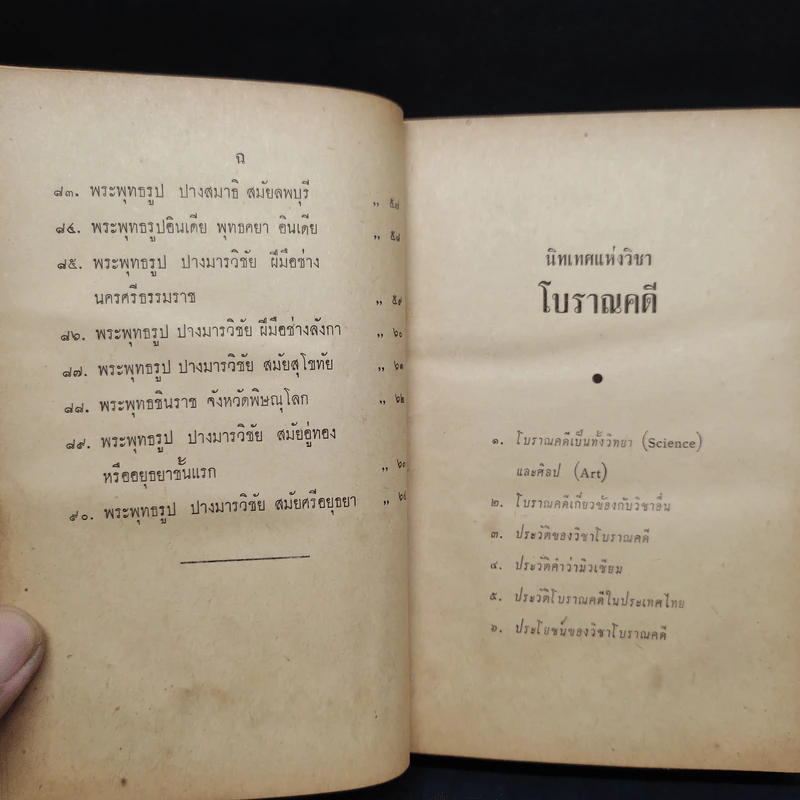 ฉ
๘๓. พระพุทธรูป ปางสมาธิ สมัยลพบุรี „ ๕๗
๘๔. พระพุทธรูปอินเดีย พุทธคยา อินเดีย „ ๕๘
๘๕. พระพุทธรูป ปางมารวิชัย ฝีมือช่าง
นครศรีธรรมราช „ ๕๙
๘๖. พระพุทธรูป ปางมารวิชัย ฝีมือช่างลังกา „ ๖๐
๘๗. พระพุทธรูป ปางมารวิชัย สมัยสุโขทัย „ ๖๑
๘๘. พระพุทธชินราช จังหวัดพิษณุโลก „ ๖๒
๘๙. พระพุทธรูป ปางมารวิชัย สมัยอู่ทอง
หรืออยุธยาชั้นแรก „ ๖๓
๙๐. พระพุทธรูป ปางมารวิชัย สมัยศรีอยุธยา „ ๖๔
นิทเทศแห่งวิชา
โบราณคดี
๑. โบราณคดีเป็นทั้งวิทยา (Science)
และศิลป (Art)
๒. โบราณคดีเกี่ยวข้องกับวิชาอื่น
๓. ประวัติของวิชาโบราณคดี
๔. ประวัติคำว่ามิวเซียม
๕. ประวัติโบราณคดีในประเทศไทย
๖. ประโยชน์ของวิชาโบราณคดี